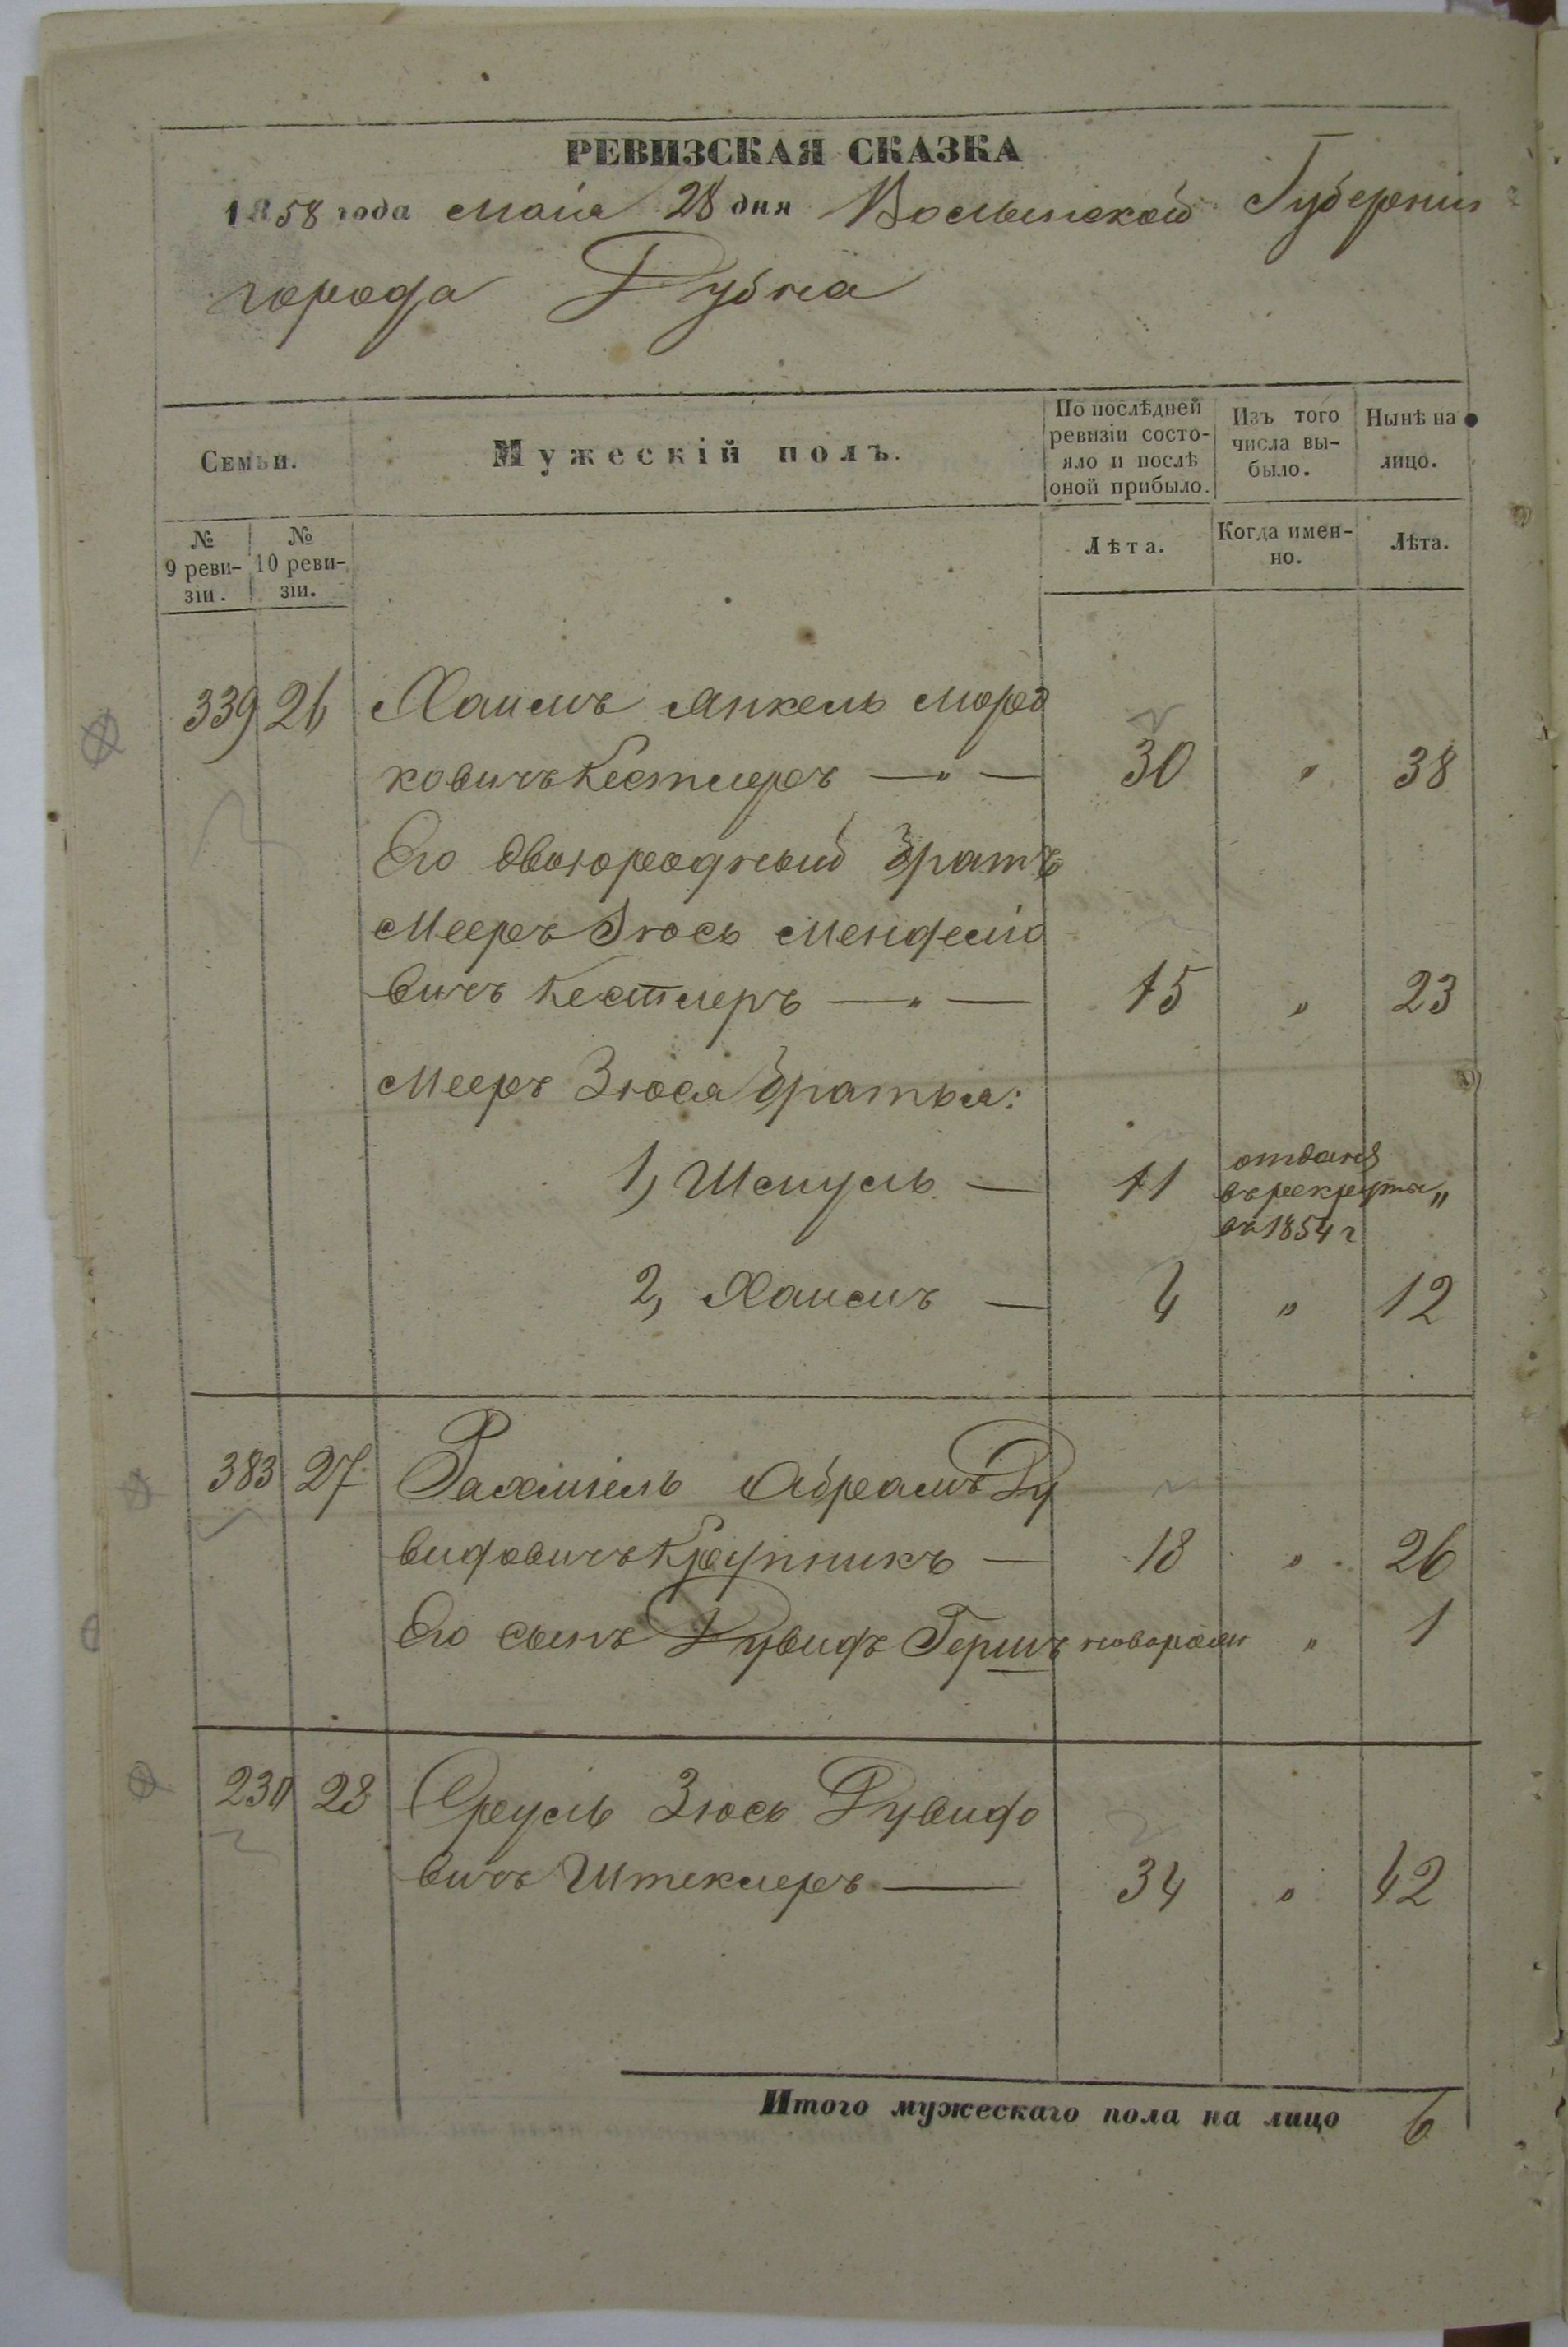 РЕВИЗСКАЯ СКАЗКА
1858 года мая 28 дня Волынской Губерніи
города Дубна
Семьи.
Мужескій полъ.
По послѣдней ревизіи состо-
яло и послѣ
оной прибыло.
Изъ того
числа вы-
было.
Нынѣ на
лицо.
№
9 реви-
зіи.
№
10 реви-
зіи.
Лѣта.
Когда имен-
но.
Лѣта.
339 26 Хаимъ Янкель Морд
ковичъ Кестлеръ — „ — 30 „ 38
Его двоюродный братъ
Мееръ Зюсь Менделіо
вичъ Кестлеръ — „ — 15 „ 23
Мееръ Зюся братья:
1, Шмуль — 11 отданъ
въ рекруты „
въ 1854 г
2, Хаимъ — 4 „ 12
383 27 Рахміель Абрамъ Ду
видовичъ Крупникъ — 18 „ 26
Его сынъ Дувидъ Гершъ новорожден „ 1
230 28 Сруль Зюсь Дувидо
вичъ Штеклеръ — 34 „ 42
Итого мужескаго пола на лицо 6